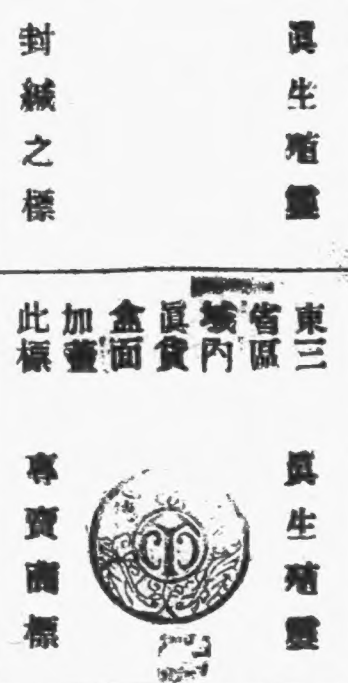 眞生殖靈
封緘之標
東三
省區
城內
眞貨
盒面
加蓋
此標
眞生殖靈
專賣商標